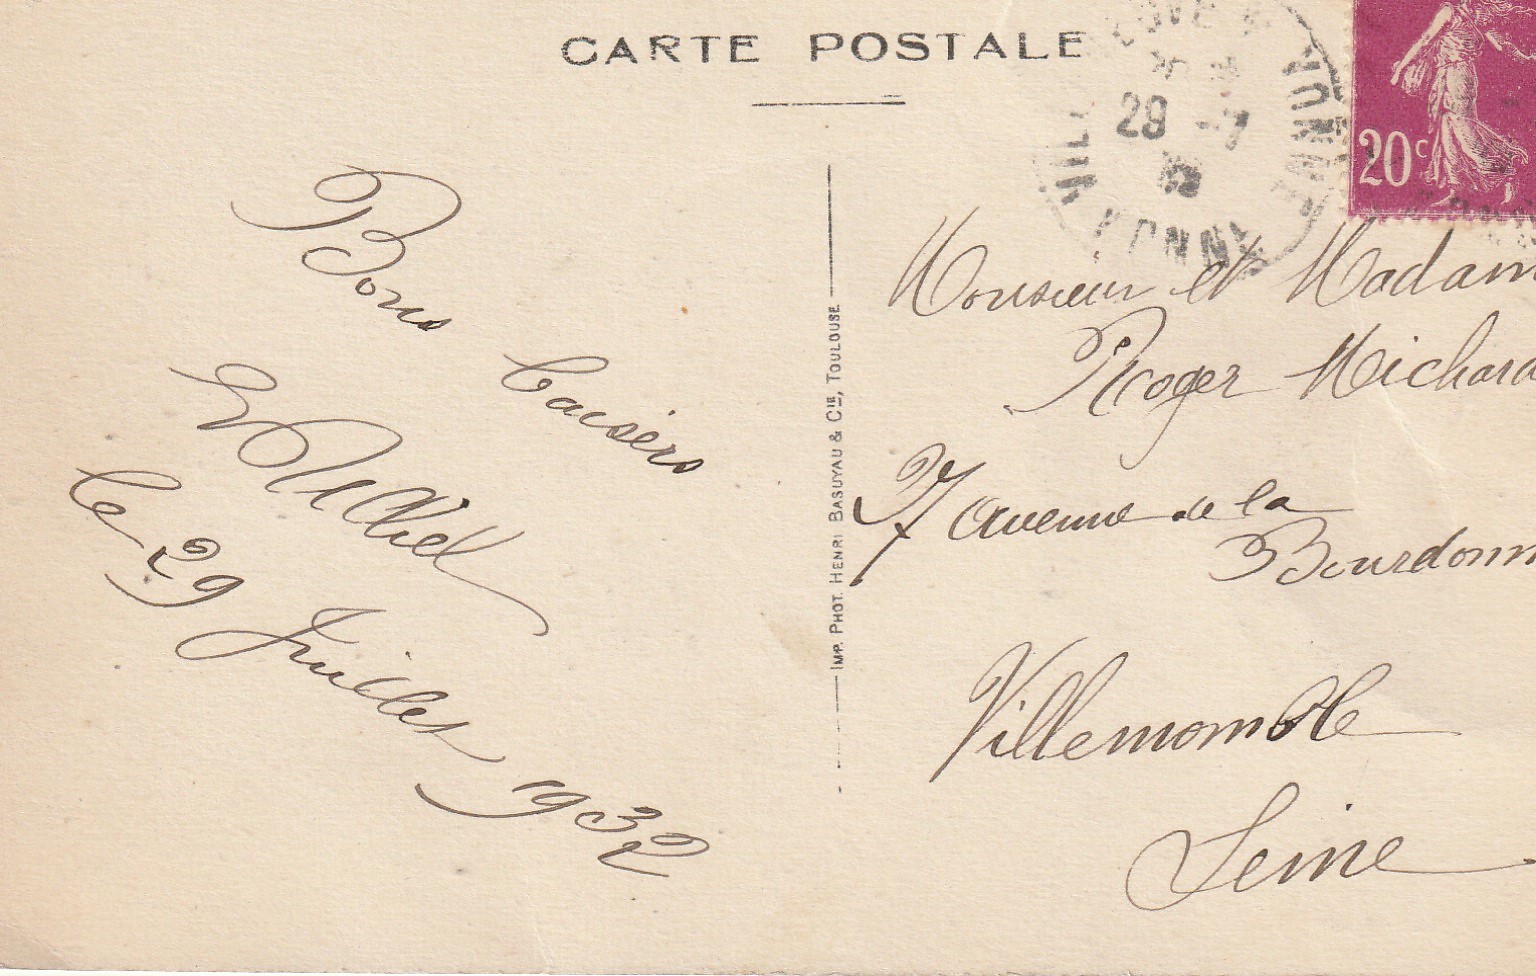 CARTE POSTALE
29 -7
20 c
Bons
baisers
le 29
Juillet
1932
IMP. PHOT. HENRI BASUYAU & CIE, TOULOUSE
Monsieur et Madam
Roger Michard
7 avenue de la
Bourdonn
Villemomble
Seine